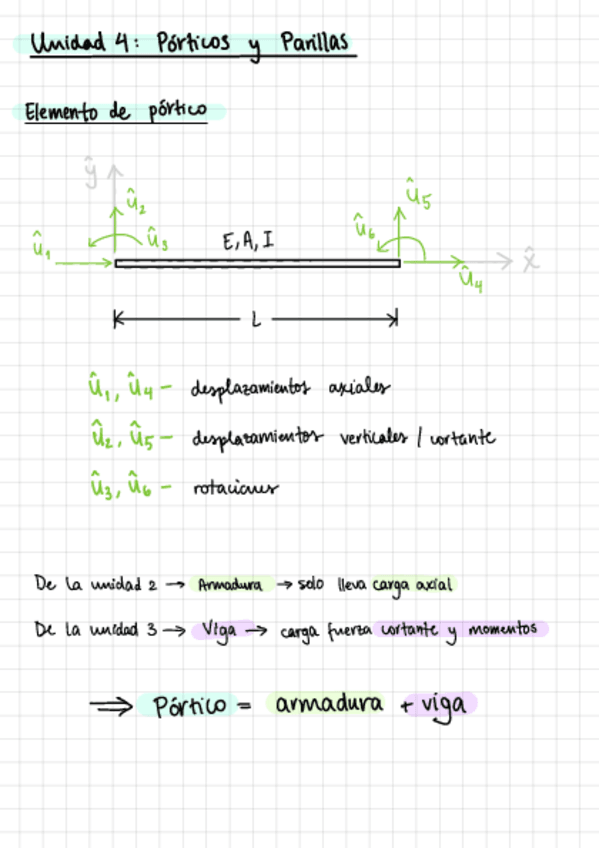 Unidad 4: Pórticos y Parillas
Elemento de pórtico
ŷ
û₂
û₅
û₁
û₃
E, A, I
û₆
x̂
û₄
L
û₁, û₄ - desplazamientos axiales
û₂, û₅ - desplazamientos verticales / cortante
û₃, û₆ - rotaciones
De la unidad 2 → Armadura → solo lleva carga axial
De la unidad 3 → Viga → carga fuerza cortante y momentos
⟹ Pórtico = armadura + viga